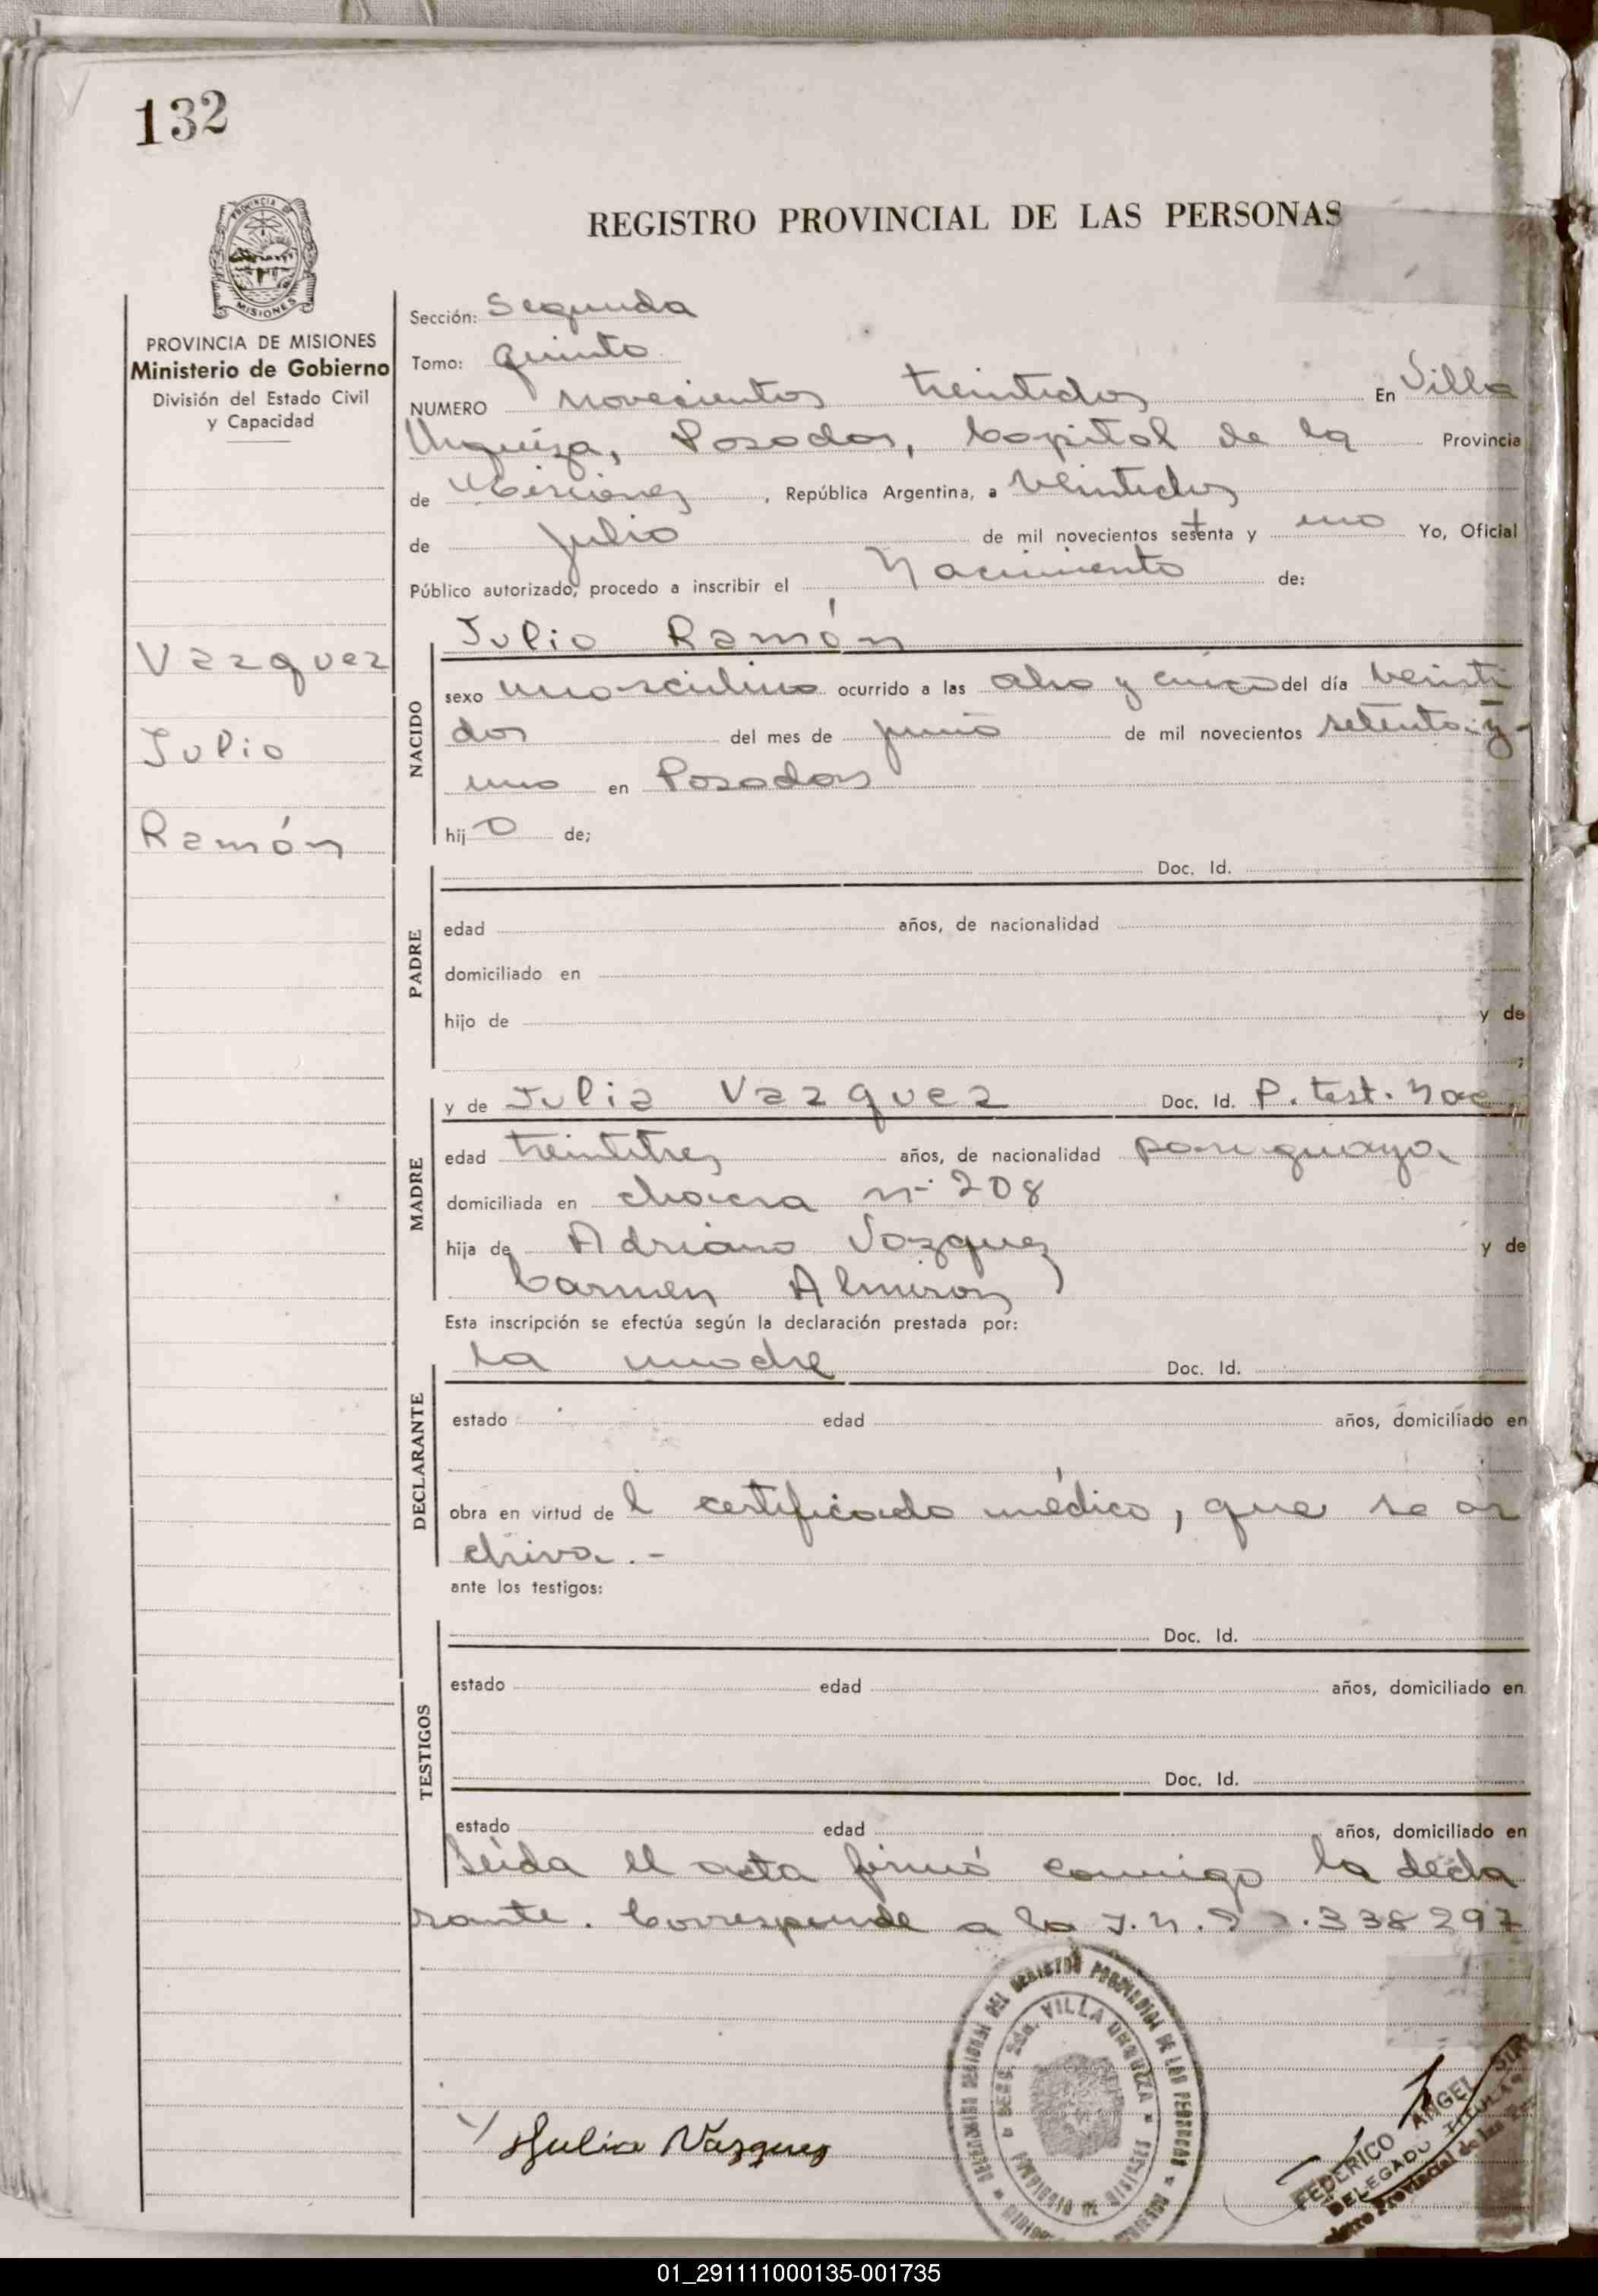 132
PROVINCIA DE
MISIONES
REGISTRO PROVINCIAL DE LAS PERSONAS
PROVINCIA DE MISIONES
Ministerio de Gobierno
División del Estado Civil
y Capacidad
Vazquez
Julio
Ramón
Sección: Segunda
Tomo: quinto
NUMERO novecientos treintidos En Villa
Urquiza, Posadas, Capital de la Provincia
de Misiones, República Argentina, a veintidos
de julio de mil novecientos setenta y uno Yo, Oficial
Público autorizado, procedo a inscribir el Nacimiento de:
NACIDO
Julio Ramón
sexo masculino ocurrido a las y cinco del día veinti
dos del mes de junio de mil novecientos setenta y
uno en Posadas
hijo de;
PADRE
Doc. Id.
edad años, de nacionalidad
domiciliado en
hijo de y de
;
MADRE
y de Julia Vazquez Doc. Id. P. test. Nac.
edad treintitres años, de nacionalidad paraguaya
domiciliada en chacra nº 208
hija de Adriano Vazquez y de
Carmen Almiron
Esta inscripción se efectúa según la declaración prestada por:
DECLARANTE
la madre Doc. Id.
estado edad años, domiciliado en
obra en virtud del certificado médico, que se ar
chiva.-
ante los testigos:
TESTIGOS
Doc. Id.
estado edad años, domiciliado en
Doc. Id.
estado edad años, domiciliado en
Leída el acta firmó conmigo la decla
rante. Corresponde a la .338297
VILLA URQUIZA
Julia Vazquez
FEDERICO ANGEL
DELEGADO TITULAR
Provincial de las
01_291111000135-001735